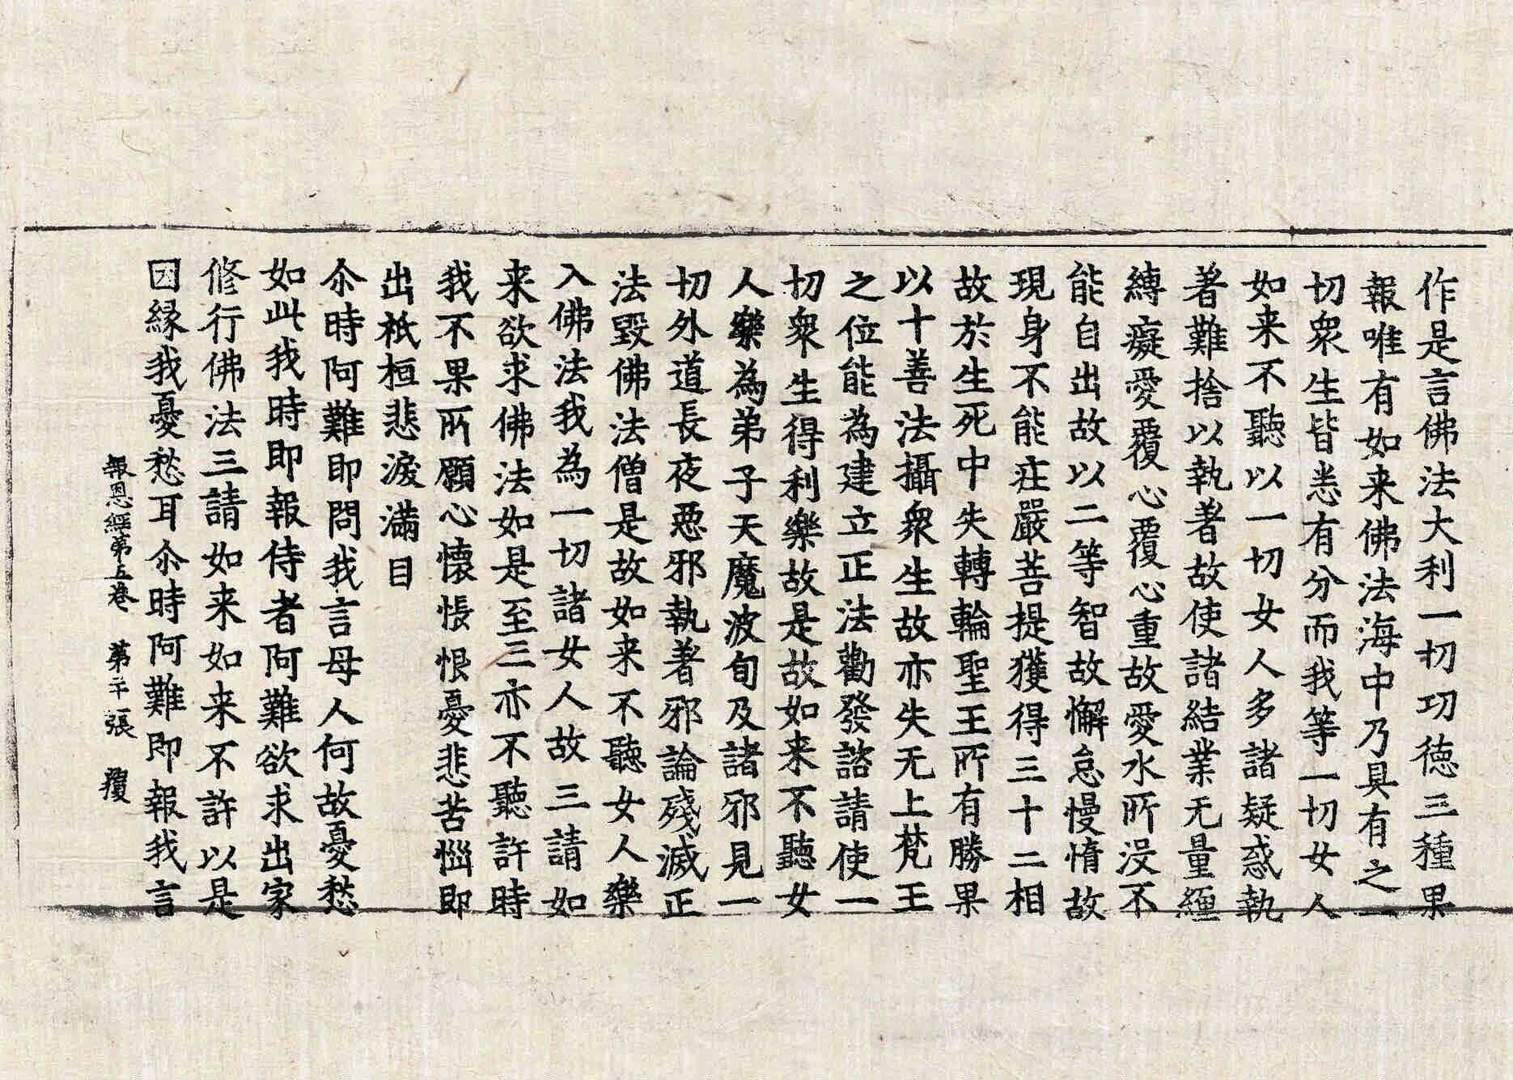 作是言佛法大利一切功徳三種果
報唯有如来佛法海中乃具有之一
切衆生皆悉有分而我等一切女人
如来不聽以一切女人多諸疑惑執
著難捨以執著故使諸結業无量纏
縛癡愛覆心覆心重故愛水所没不
能自出故以二等智故懈怠慢惰故
現身不能莊嚴菩提獲得三十二相
故於生死中失轉輪聖王所有勝果
以十善法攝衆生故亦失无上梵王
之位能為建立正法勸發諮請使一
切衆生得利樂故是故如来不聽女
人樂為弟子天魔波旬及諸邪見一
切外道長夜惡邪執著邪論殘滅正
法毀佛法僧是故如来不聽女人樂
入佛法我為一切諸女人故三請如
来欲求佛法如是至三亦不聽許時
我不果所願心懷悵恨憂悲苦惱即
出祇桓悲淚滿目
尒時阿難即問我言母人何故憂愁
如此我時即報侍者阿難欲求出家
修行佛法三請如来如来不許以是
因縁我憂愁耳尒時阿難即報我言
報恩經第五卷　第二十張　㝠